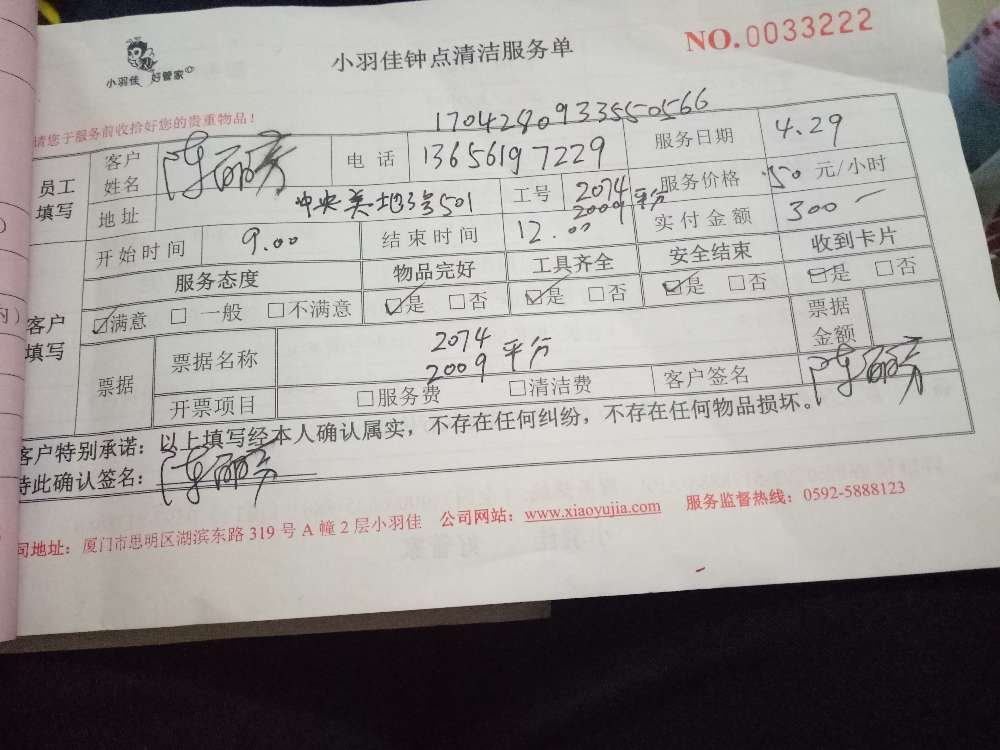 小羽佳 好管家
小羽佳钟点清洁服务单
NO.0033222
请您于服务前收拾好您的贵重物品!
17042809335550566
员工填写
客户姓名 陈丽芳 电话 13656197229 服务日期 4.29
地址 中央美地3号501 工号 2074 2009 平分 服务价格 50 元/小时
开始时间 9.00 结束时间 12.00 实付金额 300
客户填写
服务态度 物品完好 工具齐全 安全结束 收到卡片
☑满意 □一般 □不满意 ☑是 □否 ☑是 □否 ☑是 □否 ☑是 □否
票据 票据名称 2074 2009 平分 票据金额
开票项目 □服务费 □清洁费 客户签名 陈丽芳
客户特别承诺:以上填写经本人确认属实,不存在任何纠纷,不存在任何物品损坏。
特此确认签名:陈丽芳
司地址:厦门市思明区湖滨东路319号A幢2层小羽佳 公司网站:www.xiaoyujia.com 服务监督热线:0592-5888123